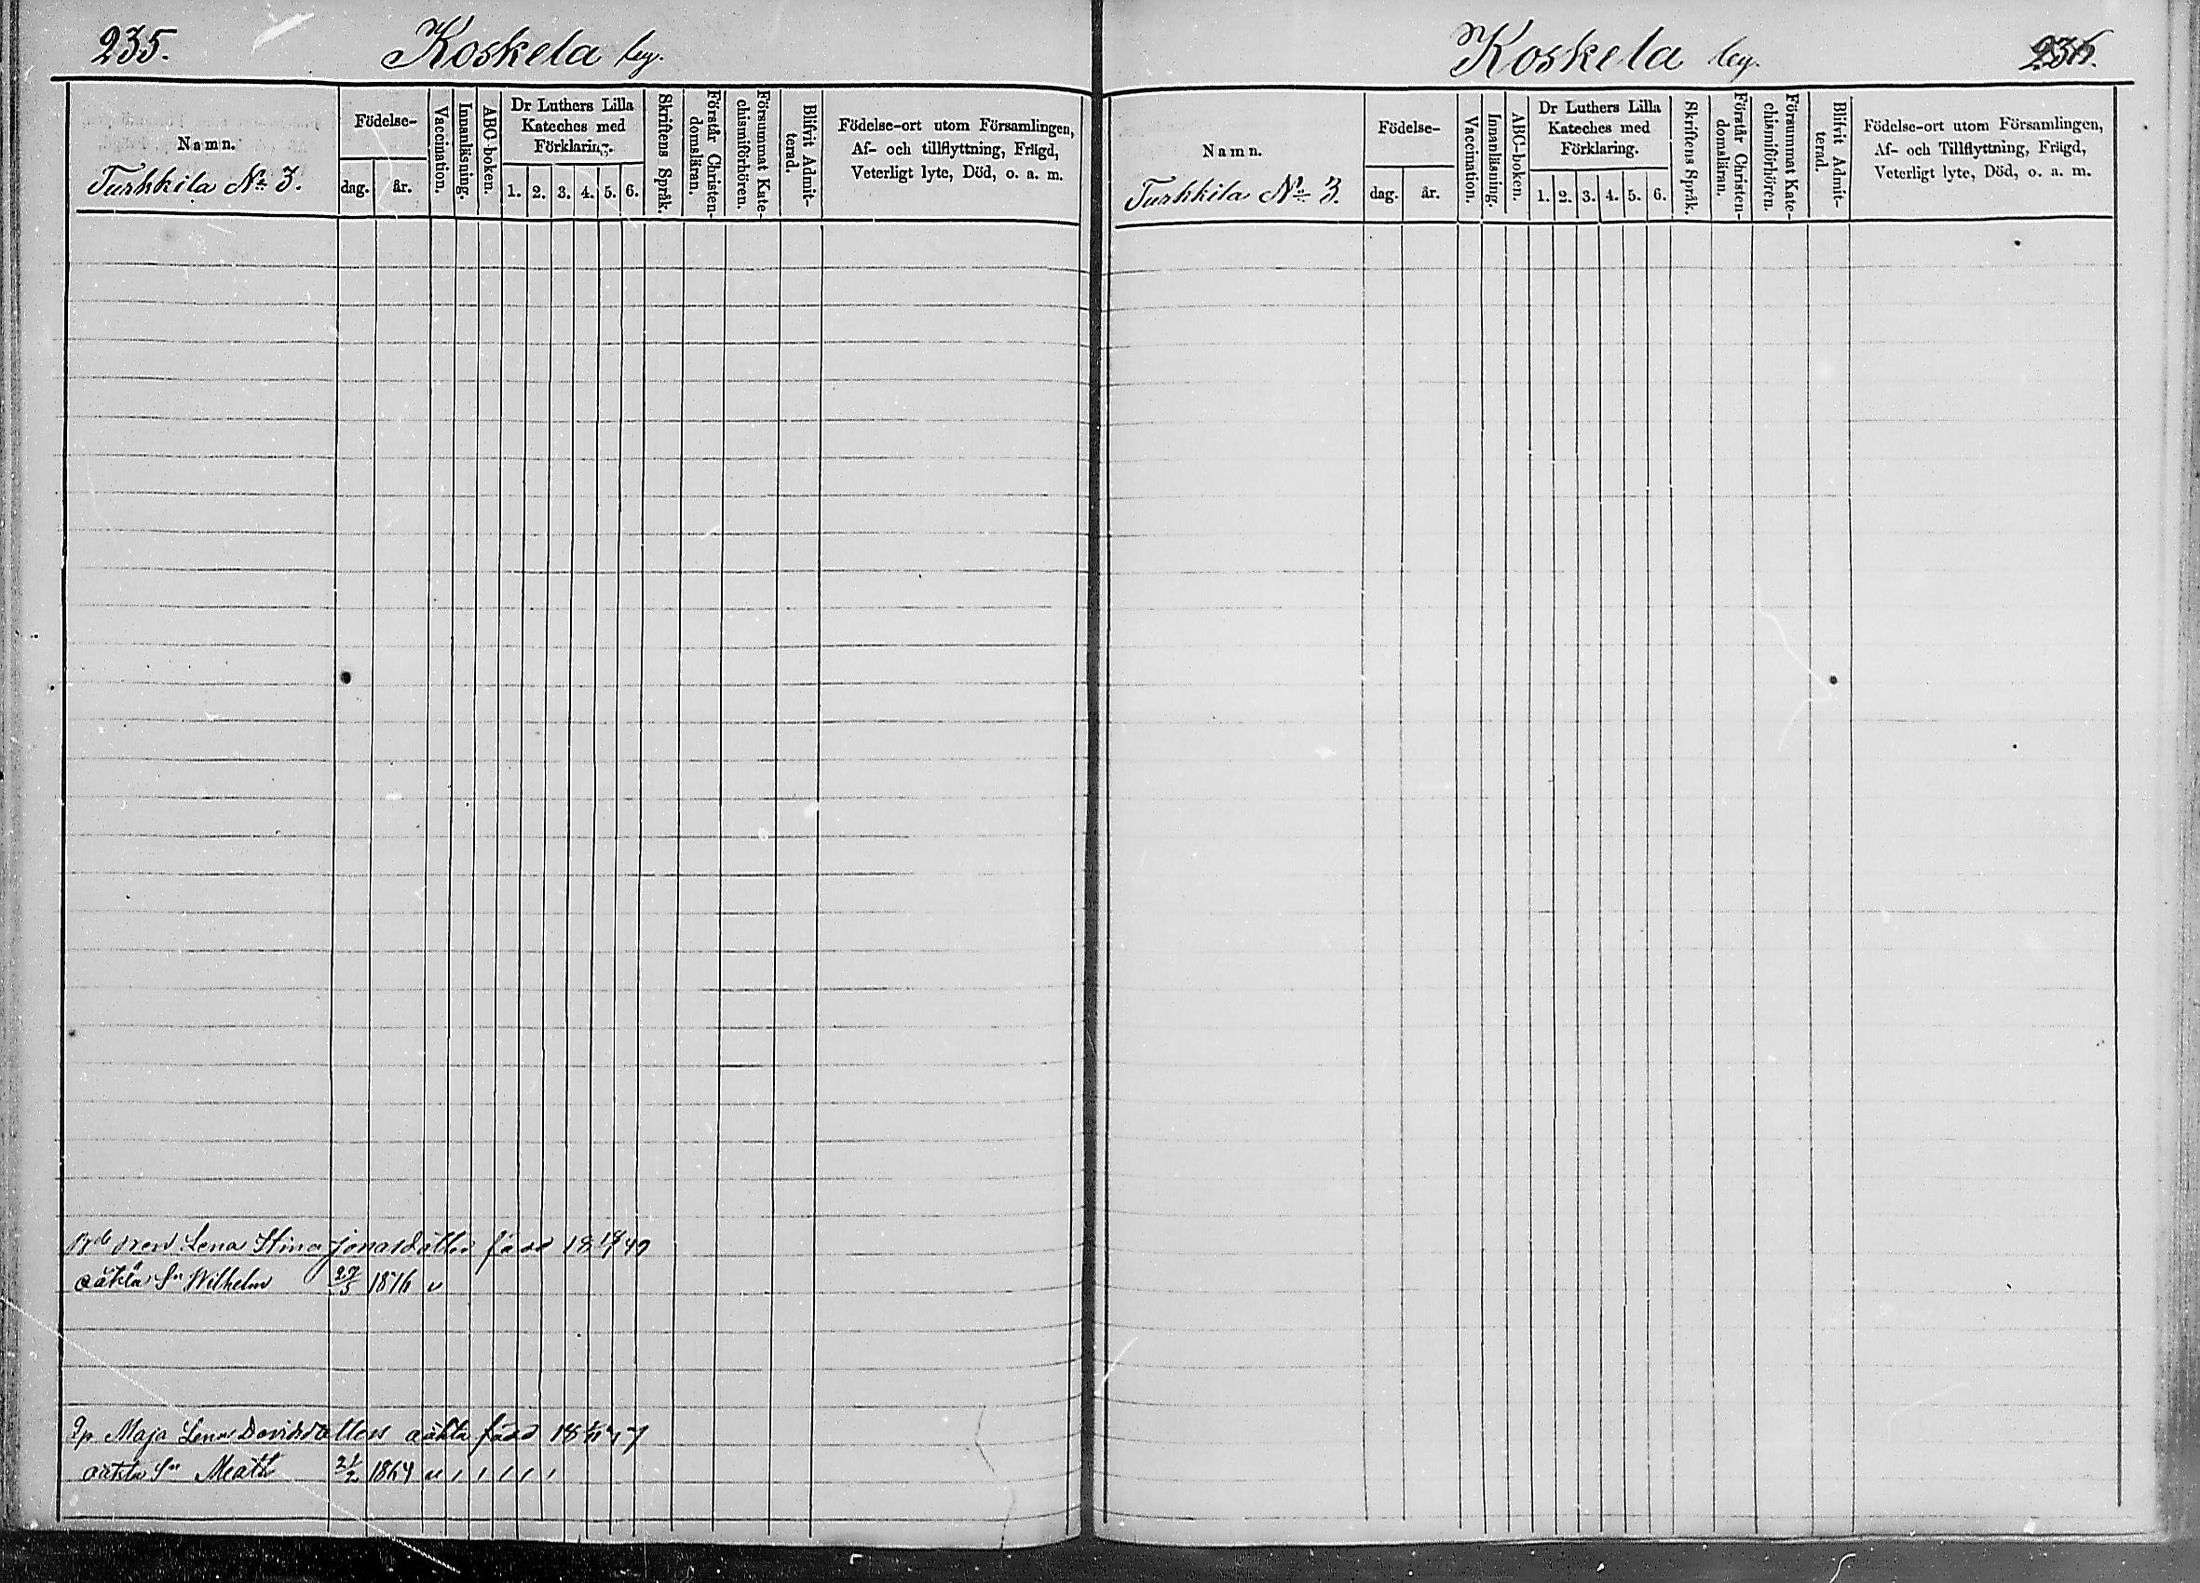 235.
Koskela by.
Namn.
Turkkila No 3.
Födelse-
dag.
år.
Vaccination.
Innanläsning.
ABC-boken.
Dr Luthers Lilla
Kateches med
Förklaring.
1. 2. 3. 4. 5. 6.
Skriftens Språk.
Förstår Christen-
domsläran.
Försummat Kate-
chismiförhören.
Blifvit Admit-
terad.
Födelse-ort utom Församlingen,
Af- och tillflyttning, Frägd,
Veterligt lyte, Död, o. a. m.
Lena Stina Jonasdotter född 18 49
oäkta Sn Wilhelm 27/5 1876 v
Maja Lena Davidsdotters oäkta född 18
oäkta Sn Math 21/2 1864
Koskela by.
236.
Namn.
Turkkila No 3.
Födelse-
dag.
år.
Vaccination.
Innanläsning.
ABC-boken.
Dr Luthers Lilla
Kateches med
Förklaring.
1. 2. 3. 4. 5. 6.
Skriftens Språk.
Förstår Christen-
domsläran.
Försummat Kate-
chismiförhören.
Blifvit Admit-
terad.
Födelse-ort utom Församlingen,
Af- och Tillflyttning, Frägd,
Veterligt lyte, Död, o. a. m.